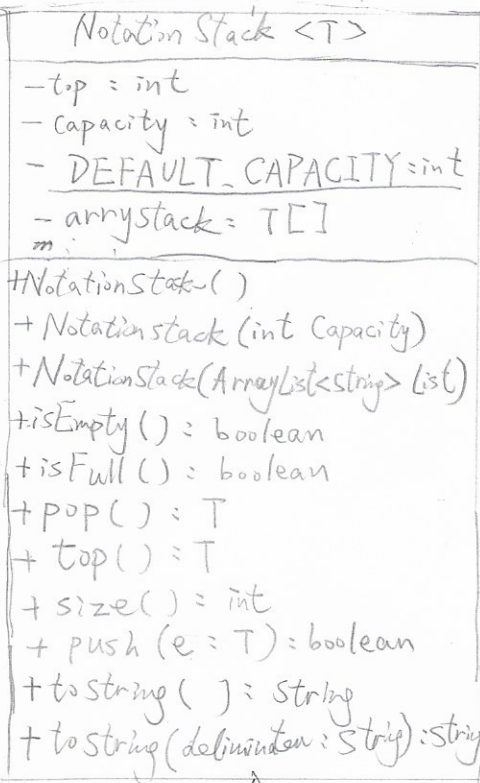 Notation Stack <T>
- top : int
- Capacity : int
- DEFAULT_CAPACITY : int
- arrystack : T[]
+NotationStack()
+ Notationstack(int Capacity)
+NotationStack(ArrayList<String> List)
+isEmpty() : boolean
+isFull() : boolean
+pop() : T
+ top() : T
+ size() : int
+ push (e : T) : boolean
+toString( ) : String